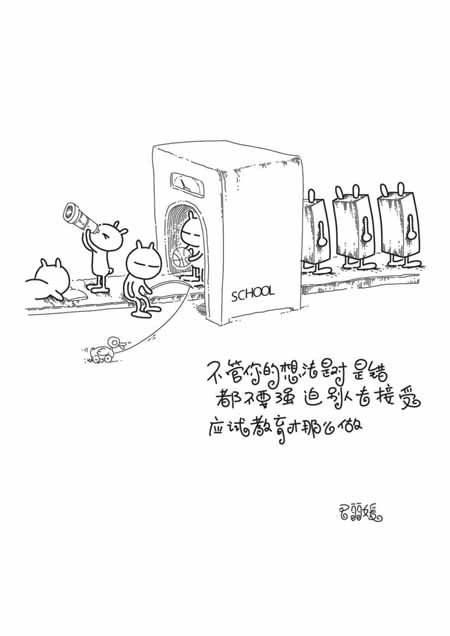 SCHOOL
不管你的想法是对是错
都不要强迫别人去接受
应试教育才那么做